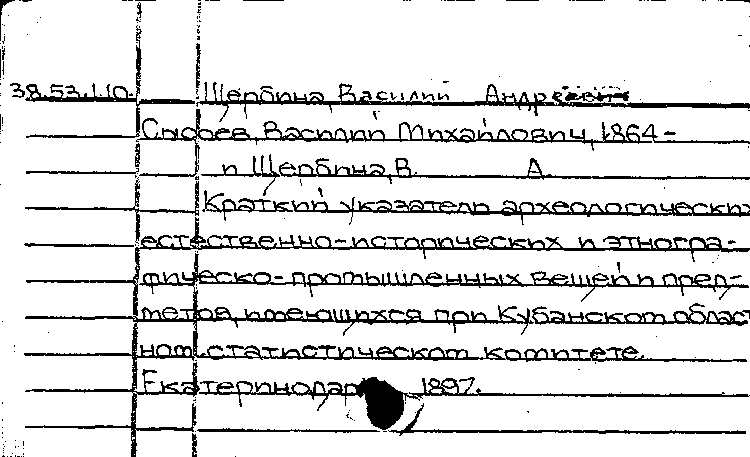 38.53.110. Щербина, Василий Андреевич
Сысоев, Василий Михайлович, 1864-
и Щербина, В. А.
Краткий указатель археологических
естественно-исторических и этногра-
фическо-промышленных вещей и пред-
метов, имеющихся при Кубанском област
ном статистическом комитете.
Екатеринодар 1897.